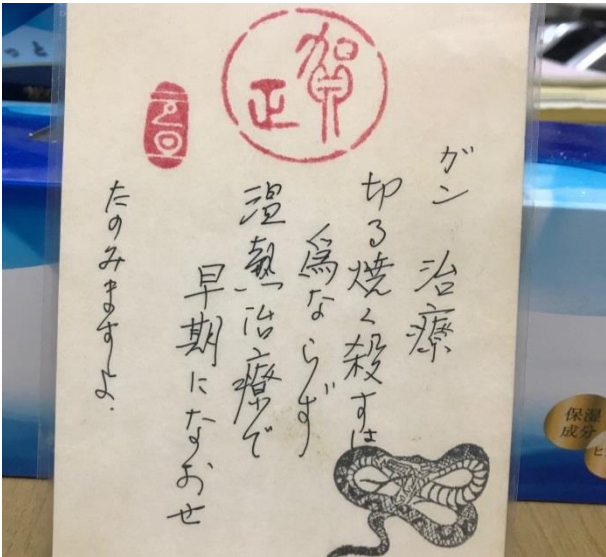 賀正
元旦
ガン 治療
切る焼く殺すは
為ならず
温熱治療で
早期になおせ
たのみますよ.
っと
保湿
成分
ヒ